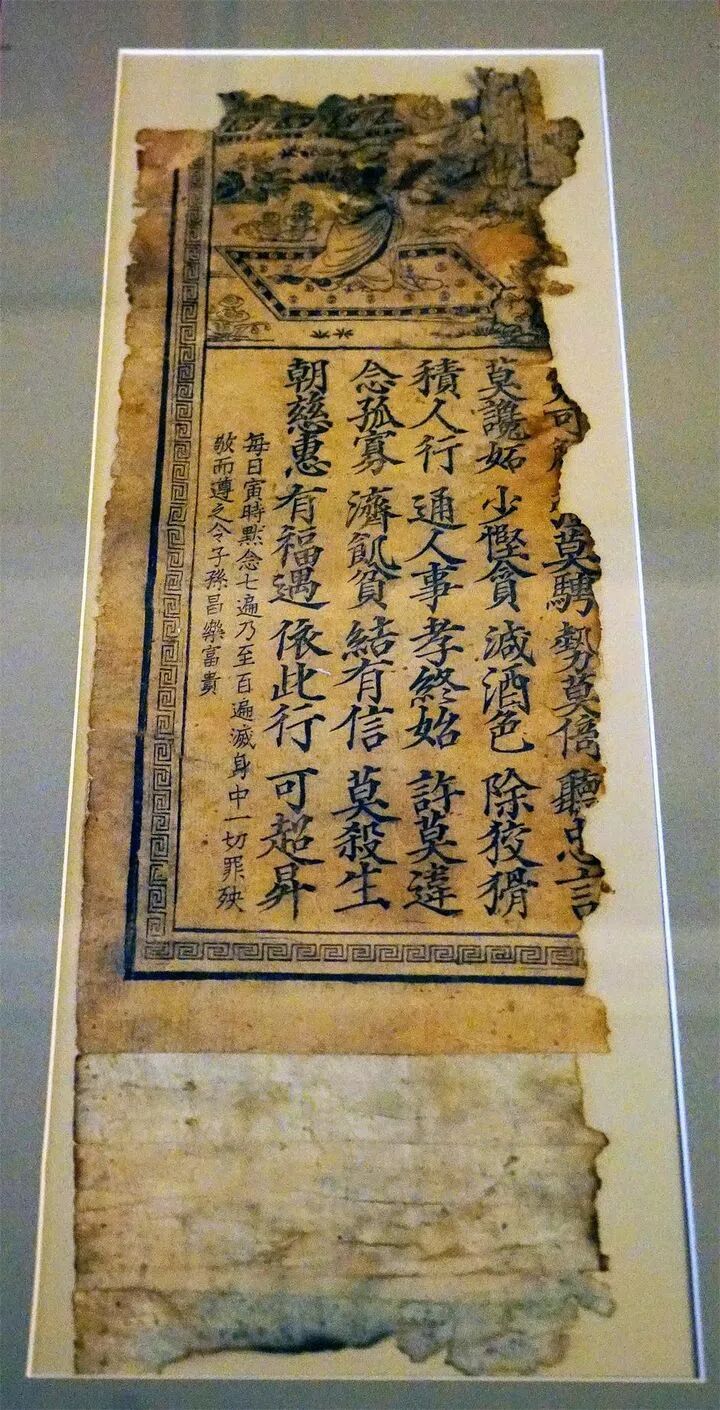 可 莫騁 勢莫倚 聽忠言
莫讒妬 少慳貪 減酒色 除狡猾
積人行 通人事 孝終始 許莫違
念孤寡 濟飢貧 結有信 莫殺生
朝慈惠 有福遇 依此行 可超昇
每日寅時點念七遍乃至百遍滅身中一切罪殃
敬而遵之令子孫昌樂富貴